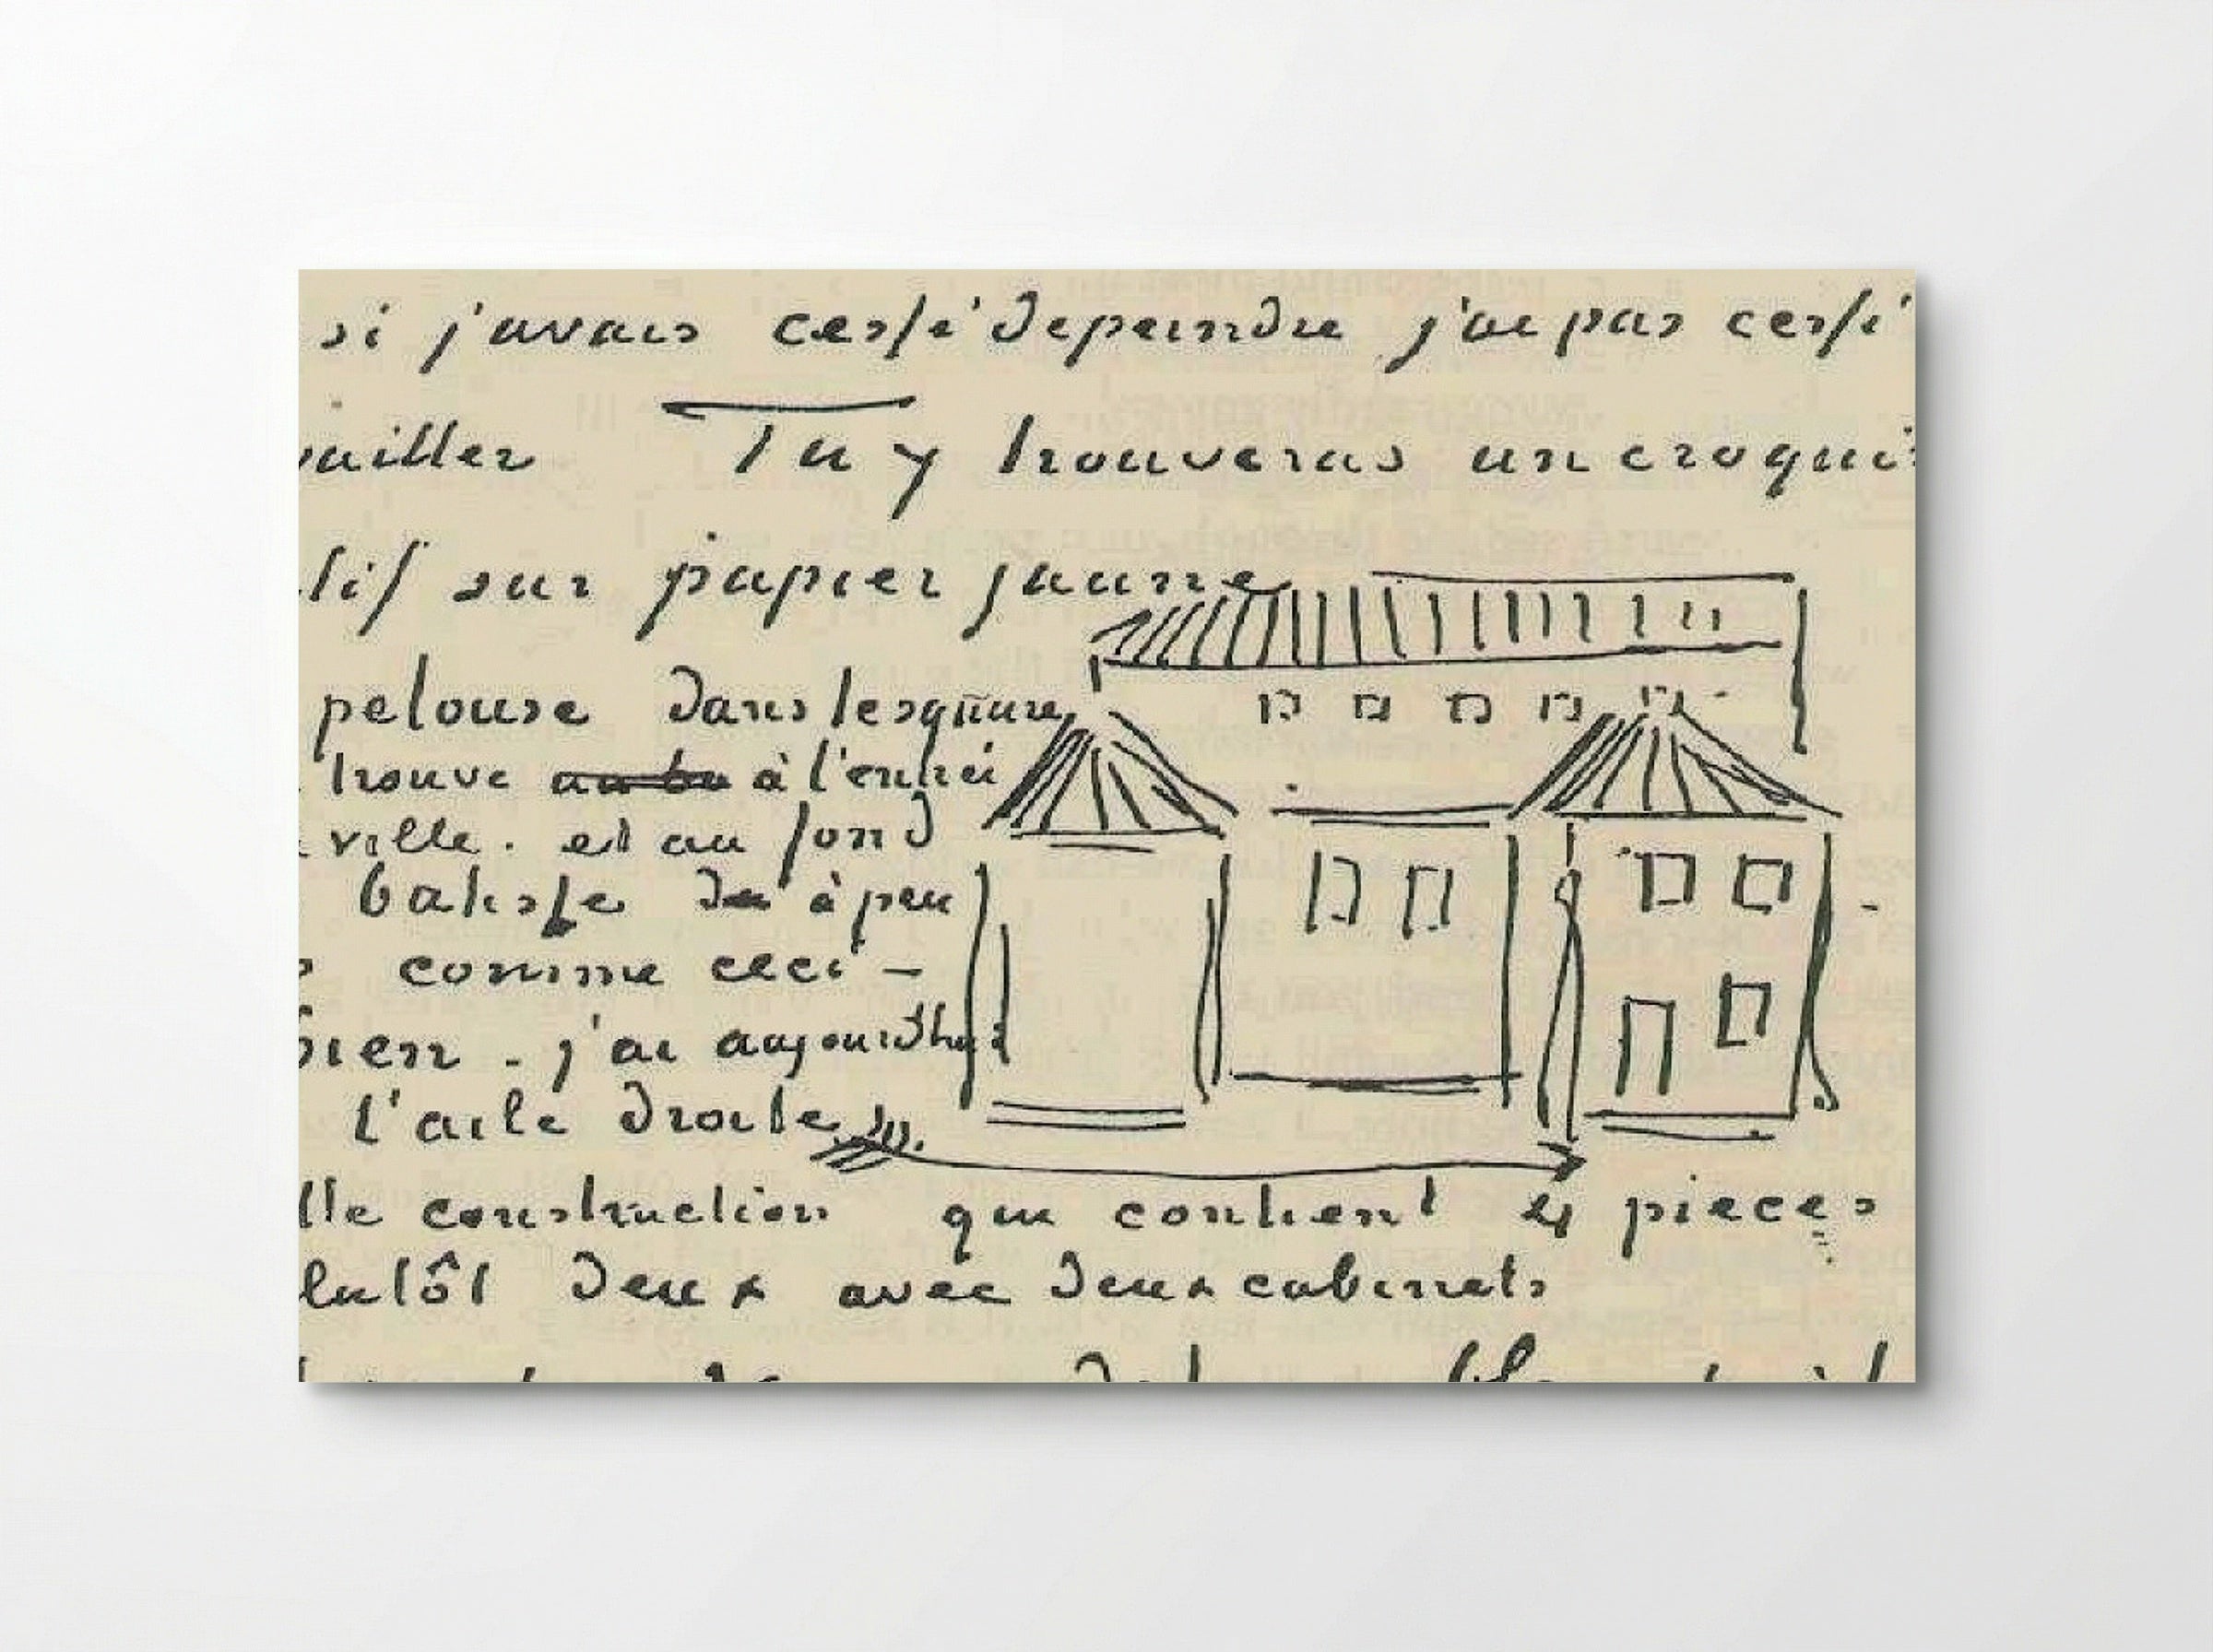 si j'avais cessé de peindre j'ai pas cessé
vailler Tu y trouveras un croquis
tif sur papier jaune
pelouse dans le square
trouve à l'entrée
ville. et au fond
batisse à peu
comme ceci –
bien. j'ai aujourdhui
l'aile droite
lle construction qui contient 4 pieces
lutôt deux avec deux cabinets